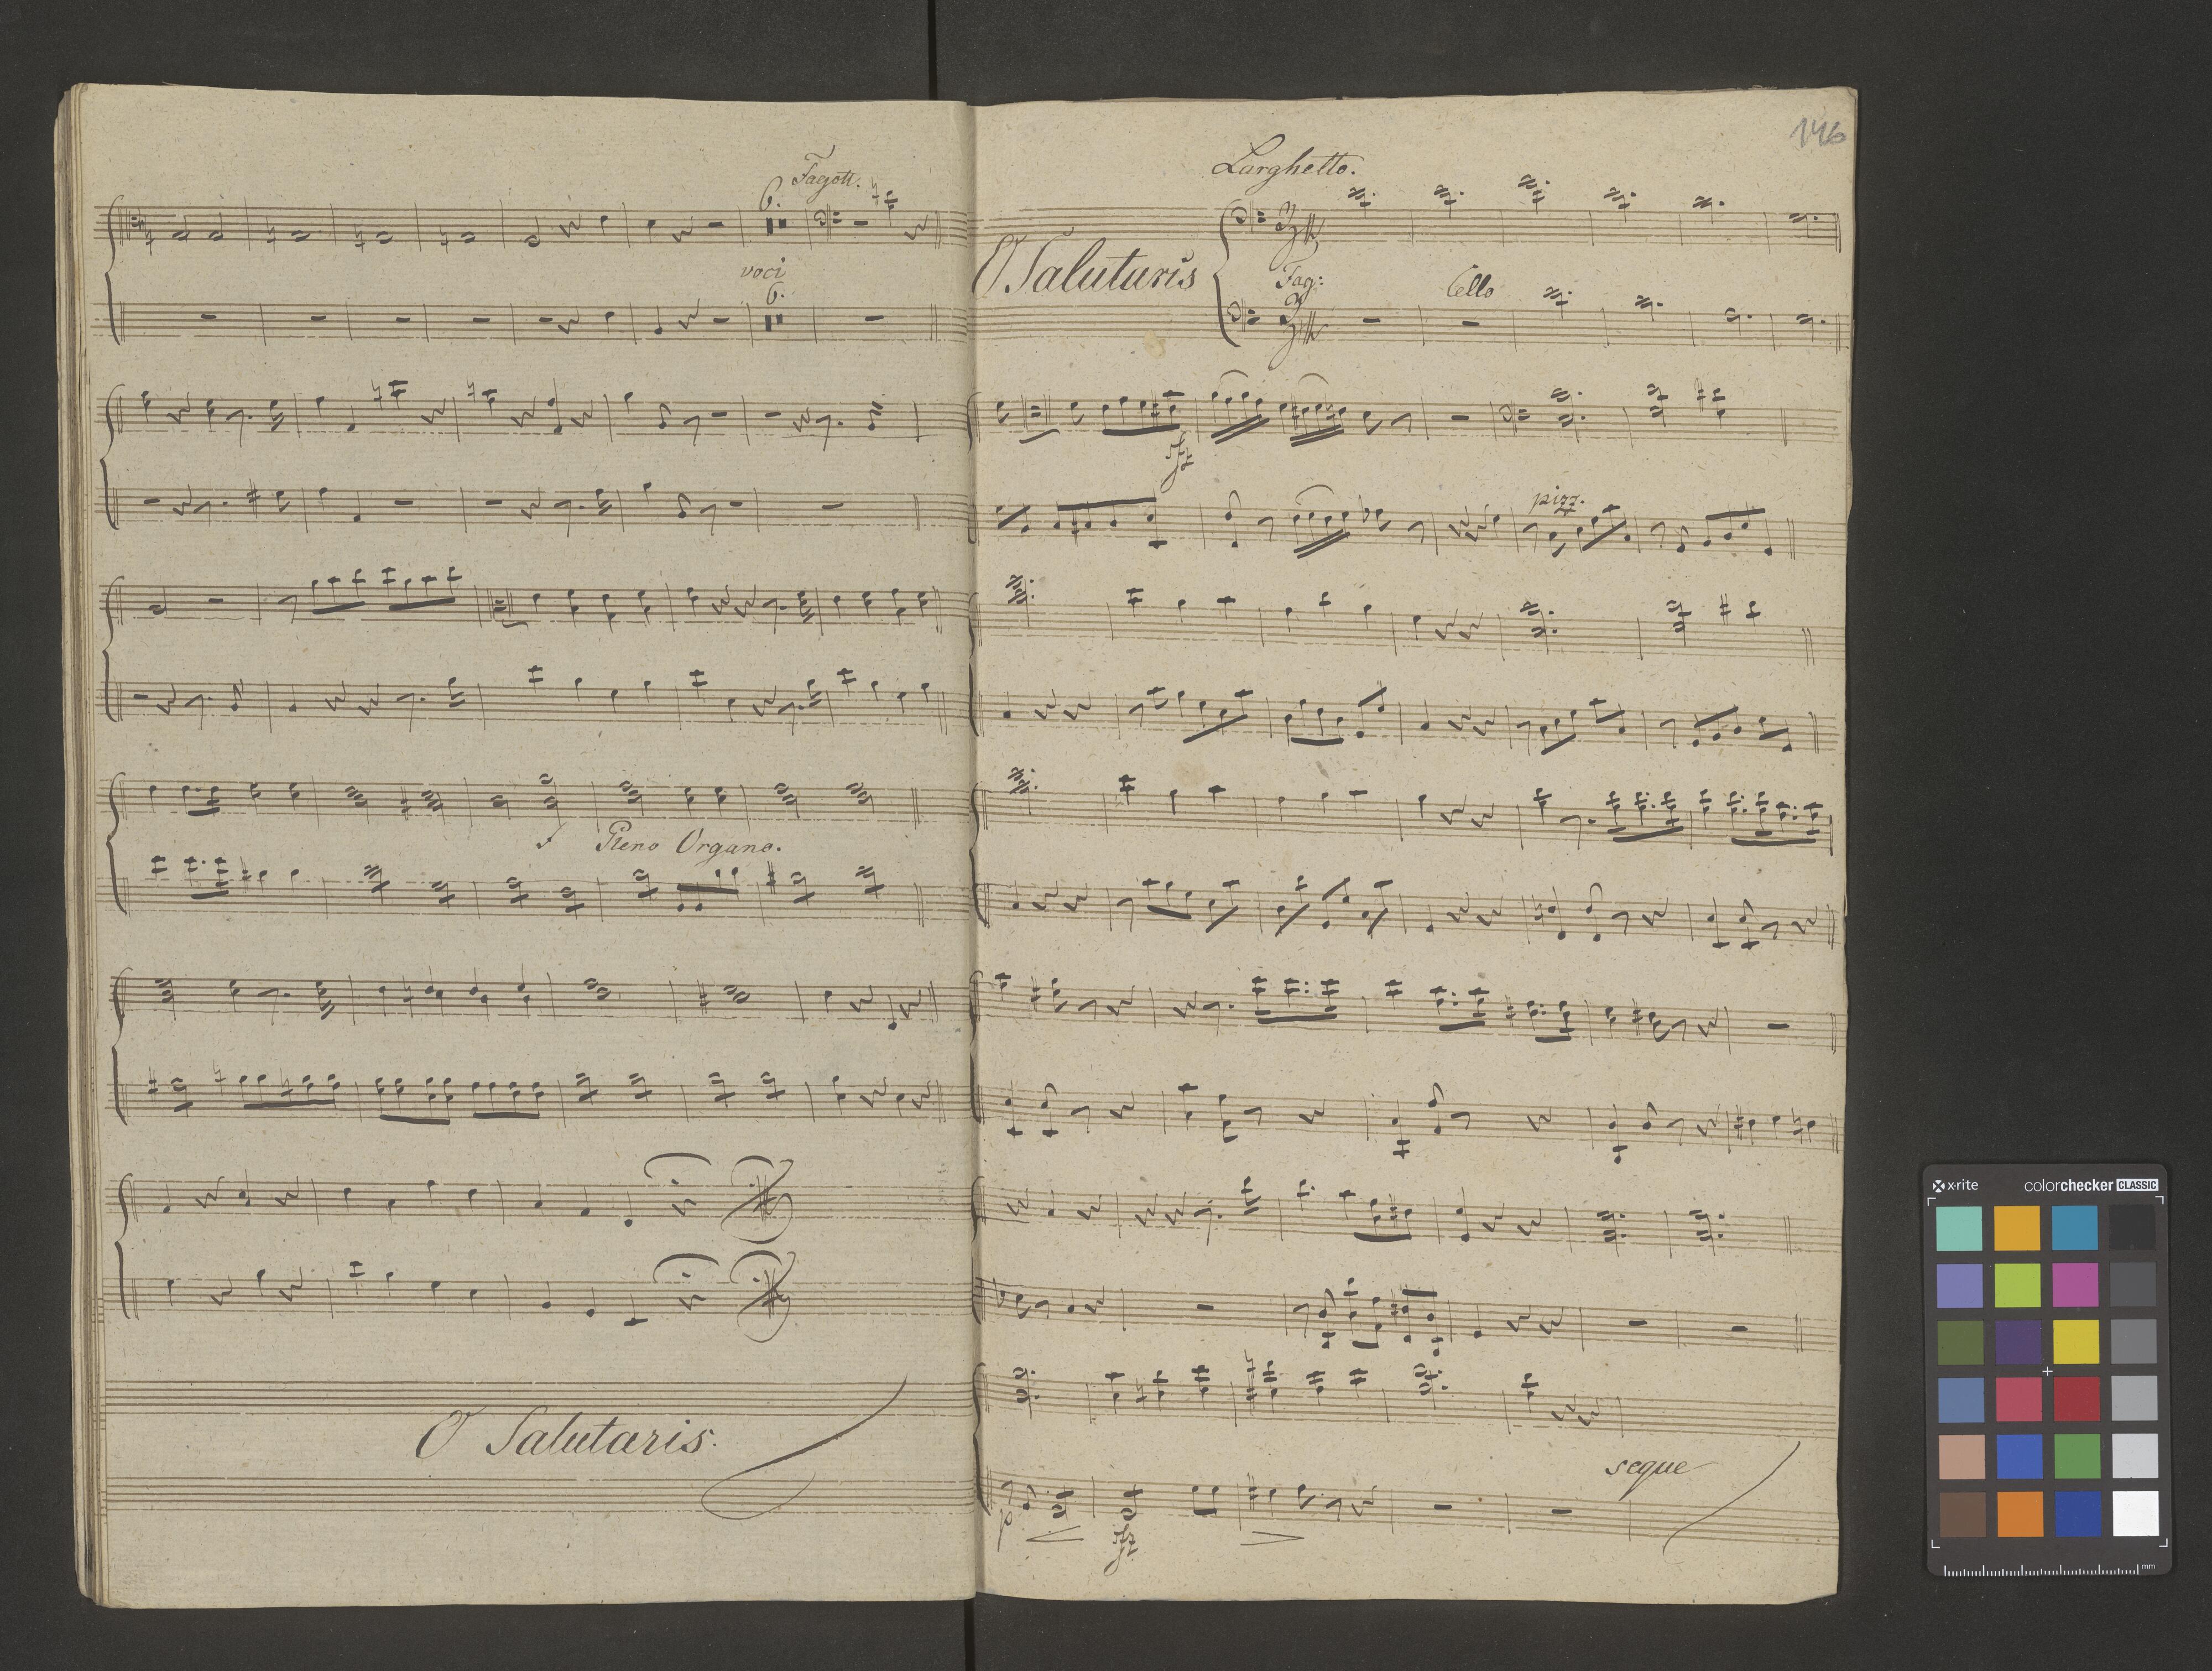 Fagott.
6.
voci
6.
f Pleno Organo.
O Salutaris.
146
Larghetto.
O Salutaris
Fag:
Cello
sfz
pizz.
seque
p
sfz
x-rite colorchecker CLASSIC
mm